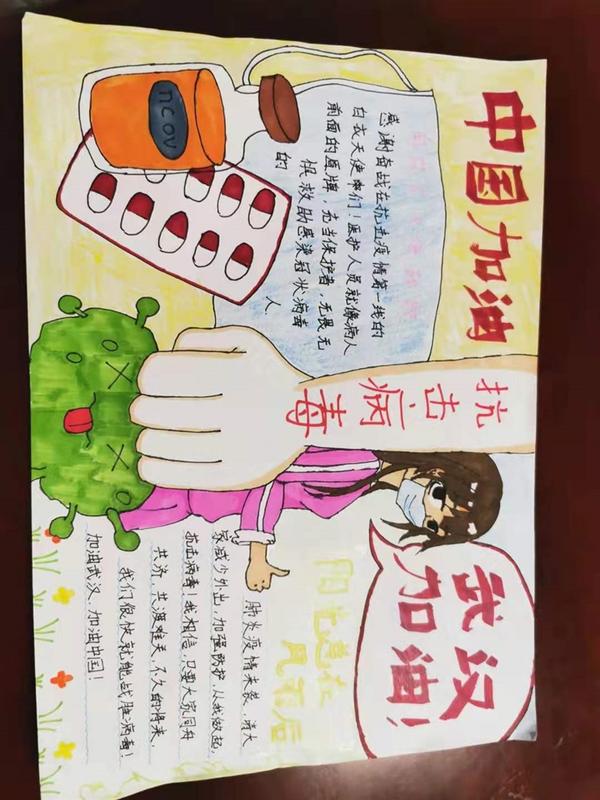 中国加油
ncov
感谢奋战在抗击疫情第一线的
白衣天使们!医护人员就像病人
前面的盾牌,充当保护者,无畏无
惧救助感染冠状病毒
的
人
抗击病毒
武汉
加油!
阳光总在
风雨后
肺炎疫情来袭,请大
家减少外出,加强防护,从我做起,
抗击病毒!我相信,只要大家同舟
共济,共渡难关,不久的将来,
我们很快就能战胜病毒!
加油武汉,加油中国!